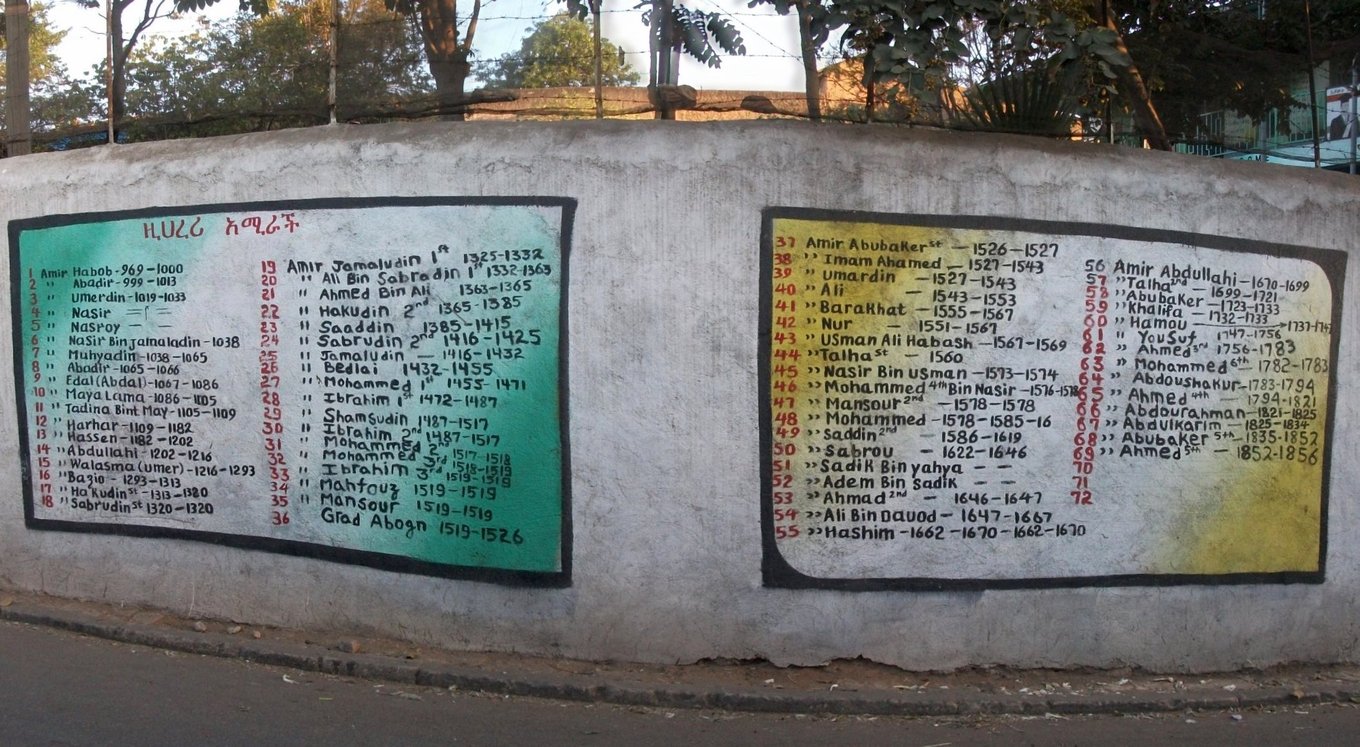 ዚሀረሪ አሚራች
1 Amir Habob - 969 - 1000
2 " Abadir - 999 - 1013
3 " Umerdin - 1019 - 1033
4 " Nasir
5 " Nasroy — —
6 " Nasir Bin Jamaladin - 1038
7 " Muhyadin - 1038 - 1065
8 " Abadir - 1065 - 1066
9 " Edal (Abdal) - 1067 - 1086
10 " Maya Lama - 1086 - 1105
11 " Tadina Bint May - 1105 - 1109
12 " Harhar - 1109 - 1182
13 " Hassen - 1182 - 1202
14 " Abdullahi - 1202 - 1216
15 " Walasma (Umer) - 1216 - 1293
16 " Bazio - 1293 - 1313
17 " Hakudin st - 1313 - 1320
18 " Sabrudin st 1320 - 1320
19 Amir Jamaludin 1st 1325-1332
20 " Ali Bin Sabradin 1st 1332-1363
21 " Ahmed Bin Ali 1363-1365
22 " Hakudin 2nd 1365-1385
23 " Saaddin 1385-1415
24 " Sabrudin 2nd 1416-1425
25 " Jamaludin — 1416-1432
26 " Bedlai 1432-1455
27 " Mohammed 1st 1455-1471
28 " Ibrahim 1st 1472-1487
29 " Shamsudin 1487-1517
30 " Ibrahim 2nd 1487-1517
31 " Mohammed 2nd 1517-1518
32 " Mohammed 3rd 1518-1519
33 " Ibrahim 3rd 1519-1519
34 " Mahfouz 1519-1519
35 " Mansour 1519-1519
36 Grad Abogn 1519-1526
37 Amir Abubaker st — 1526 - 1527
38 " Imam Ahamed — 1527 - 1543
39 " Umardin — 1527 - 1543
40 " Ali — 1543 - 1553
41 " Barakhat — 1555 - 1567
42 " Nur — 1551 - 1567
43 " Usman Ali Habash - 1567 - 1569
44 " Talha st — 1560
45 " Nasir Bin Usman - 1573 - 1574
46 " Mohammed 4th Bin Nasir - 1576 - 1578
47 " Mansour 2nd — 1578 - 1578
48 " Mohammed — 1578 - 1585 - 16
49 " Saddin 2nd — 1586 - 1619
50 " Sabrou — 1622 - 1646
51 " Sadik Bin yahya — —
52 " Adem Bin Sadik — —
53 " Ahmad 2nd — 1646 - 1647
54 " Ali Bin Dauod - 1647 - 1667
55 " Hashim - 1662 - 1670 - 1662 - 1670
56 Amir Abdullahi - 1670 - 1699
57 " Talha 2nd — 1699 - 1721
58 " Abubaker — 1723 - 1733
59 " Khalifa — 1732 - 1733
60 " Hamou 1737-1747
61 " YouSuf 1747-1756
62 " Ahmed 3rd 1756-1783
63 " Mohammed 6th - 1782-1783
64 " Abdoushakur - 1783-1794
65 " Ahmed 4th — 1794-1821
66 " Abdourahman - 1821-1825
67 " Abdulkarim - 1825-1834
68 " Abubaker 5th - 1835-1852
69 " Ahmed 5th — 1852-1856
70
71
72